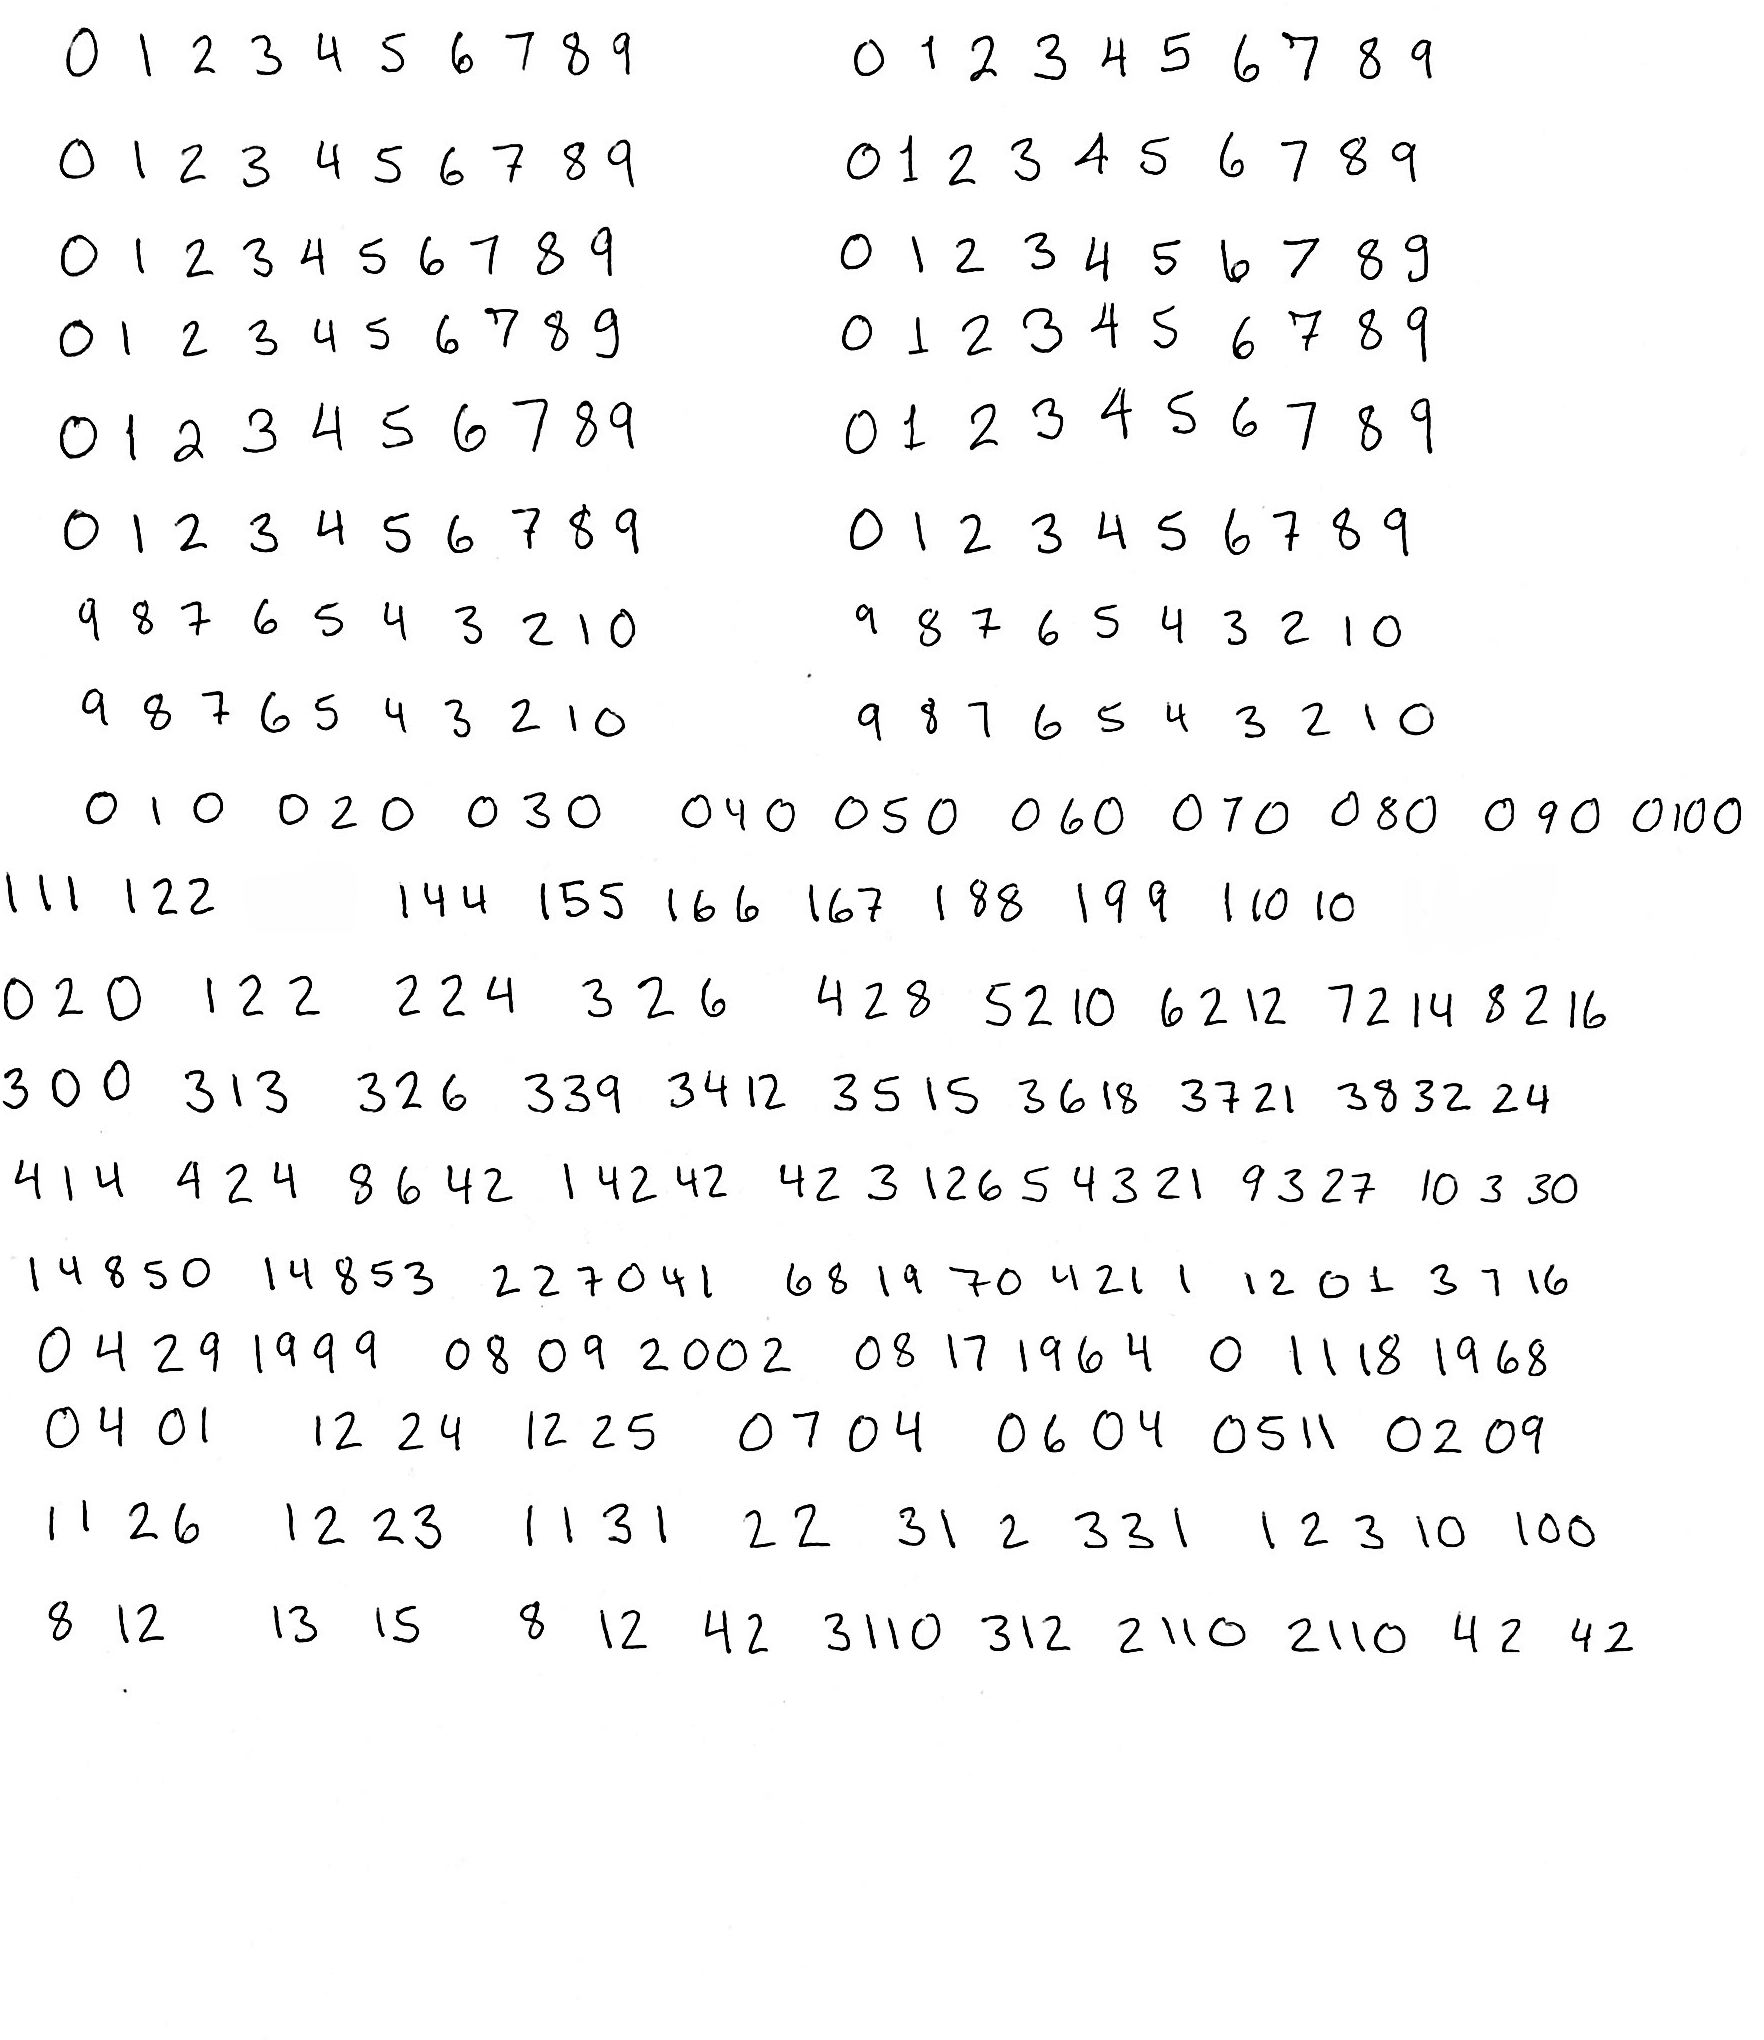 0 1 2 3 4 5 6 7 8 9 0 1 2 3 4 5 6 7 8 9
0 1 2 3 4 5 6 7 8 9 0 1 2 3 4 5 6 7 8 9
0 1 2 3 4 5 6 7 8 9 0 1 2 3 4 5 6 7 8 9
0 1 2 3 4 5 6 7 8 9 0 1 2 3 4 5 6 7 8 9
0 1 2 3 4 5 6 7 8 9 0 1 2 3 4 5 6 7 8 9
0 1 2 3 4 5 6 7 8 9 0 1 2 3 4 5 6 7 8 9
9 8 7 6 5 4 3 2 1 0 9 8 7 6 5 4 3 2 1 0
9 8 7 6 5 4 3 2 1 0 9 8 7 6 5 4 3 2 1 0
0 1 0 0 2 0 0 3 0 0 4 0 0 5 0 0 6 0 0 7 0 0 8 0 0 9 0 0100
111 122 144 155 166 167 188 199 110 10
0 2 0 1 2 2 2 2 4 3 2 6 4 2 8 5 2 10 6 2 12 7 2 14 8 2 16
3 0 0 3 1 3 3 2 6 3 3 9 3 4 12 3 5 15 3 6 18 3 7 21 3 8 32 24
4 1 4 4 2 4 8 6 42 1 42 42 42 3 126 5 4 3 21 9 3 27 10 3 30
14850 14853 227041 68 19 70 4211 1201 3 7 16
04 29 1999 08 09 2002 08 17 1964 0 11 18 1968
04 01 12 24 12 25 07 04 06 04 05 11 02 09
11 26 12 23 11 31 22 31 2 331 1 2 3 10 100
8 12 13 15 8 12 42 3110 312 2110 2110 42 42